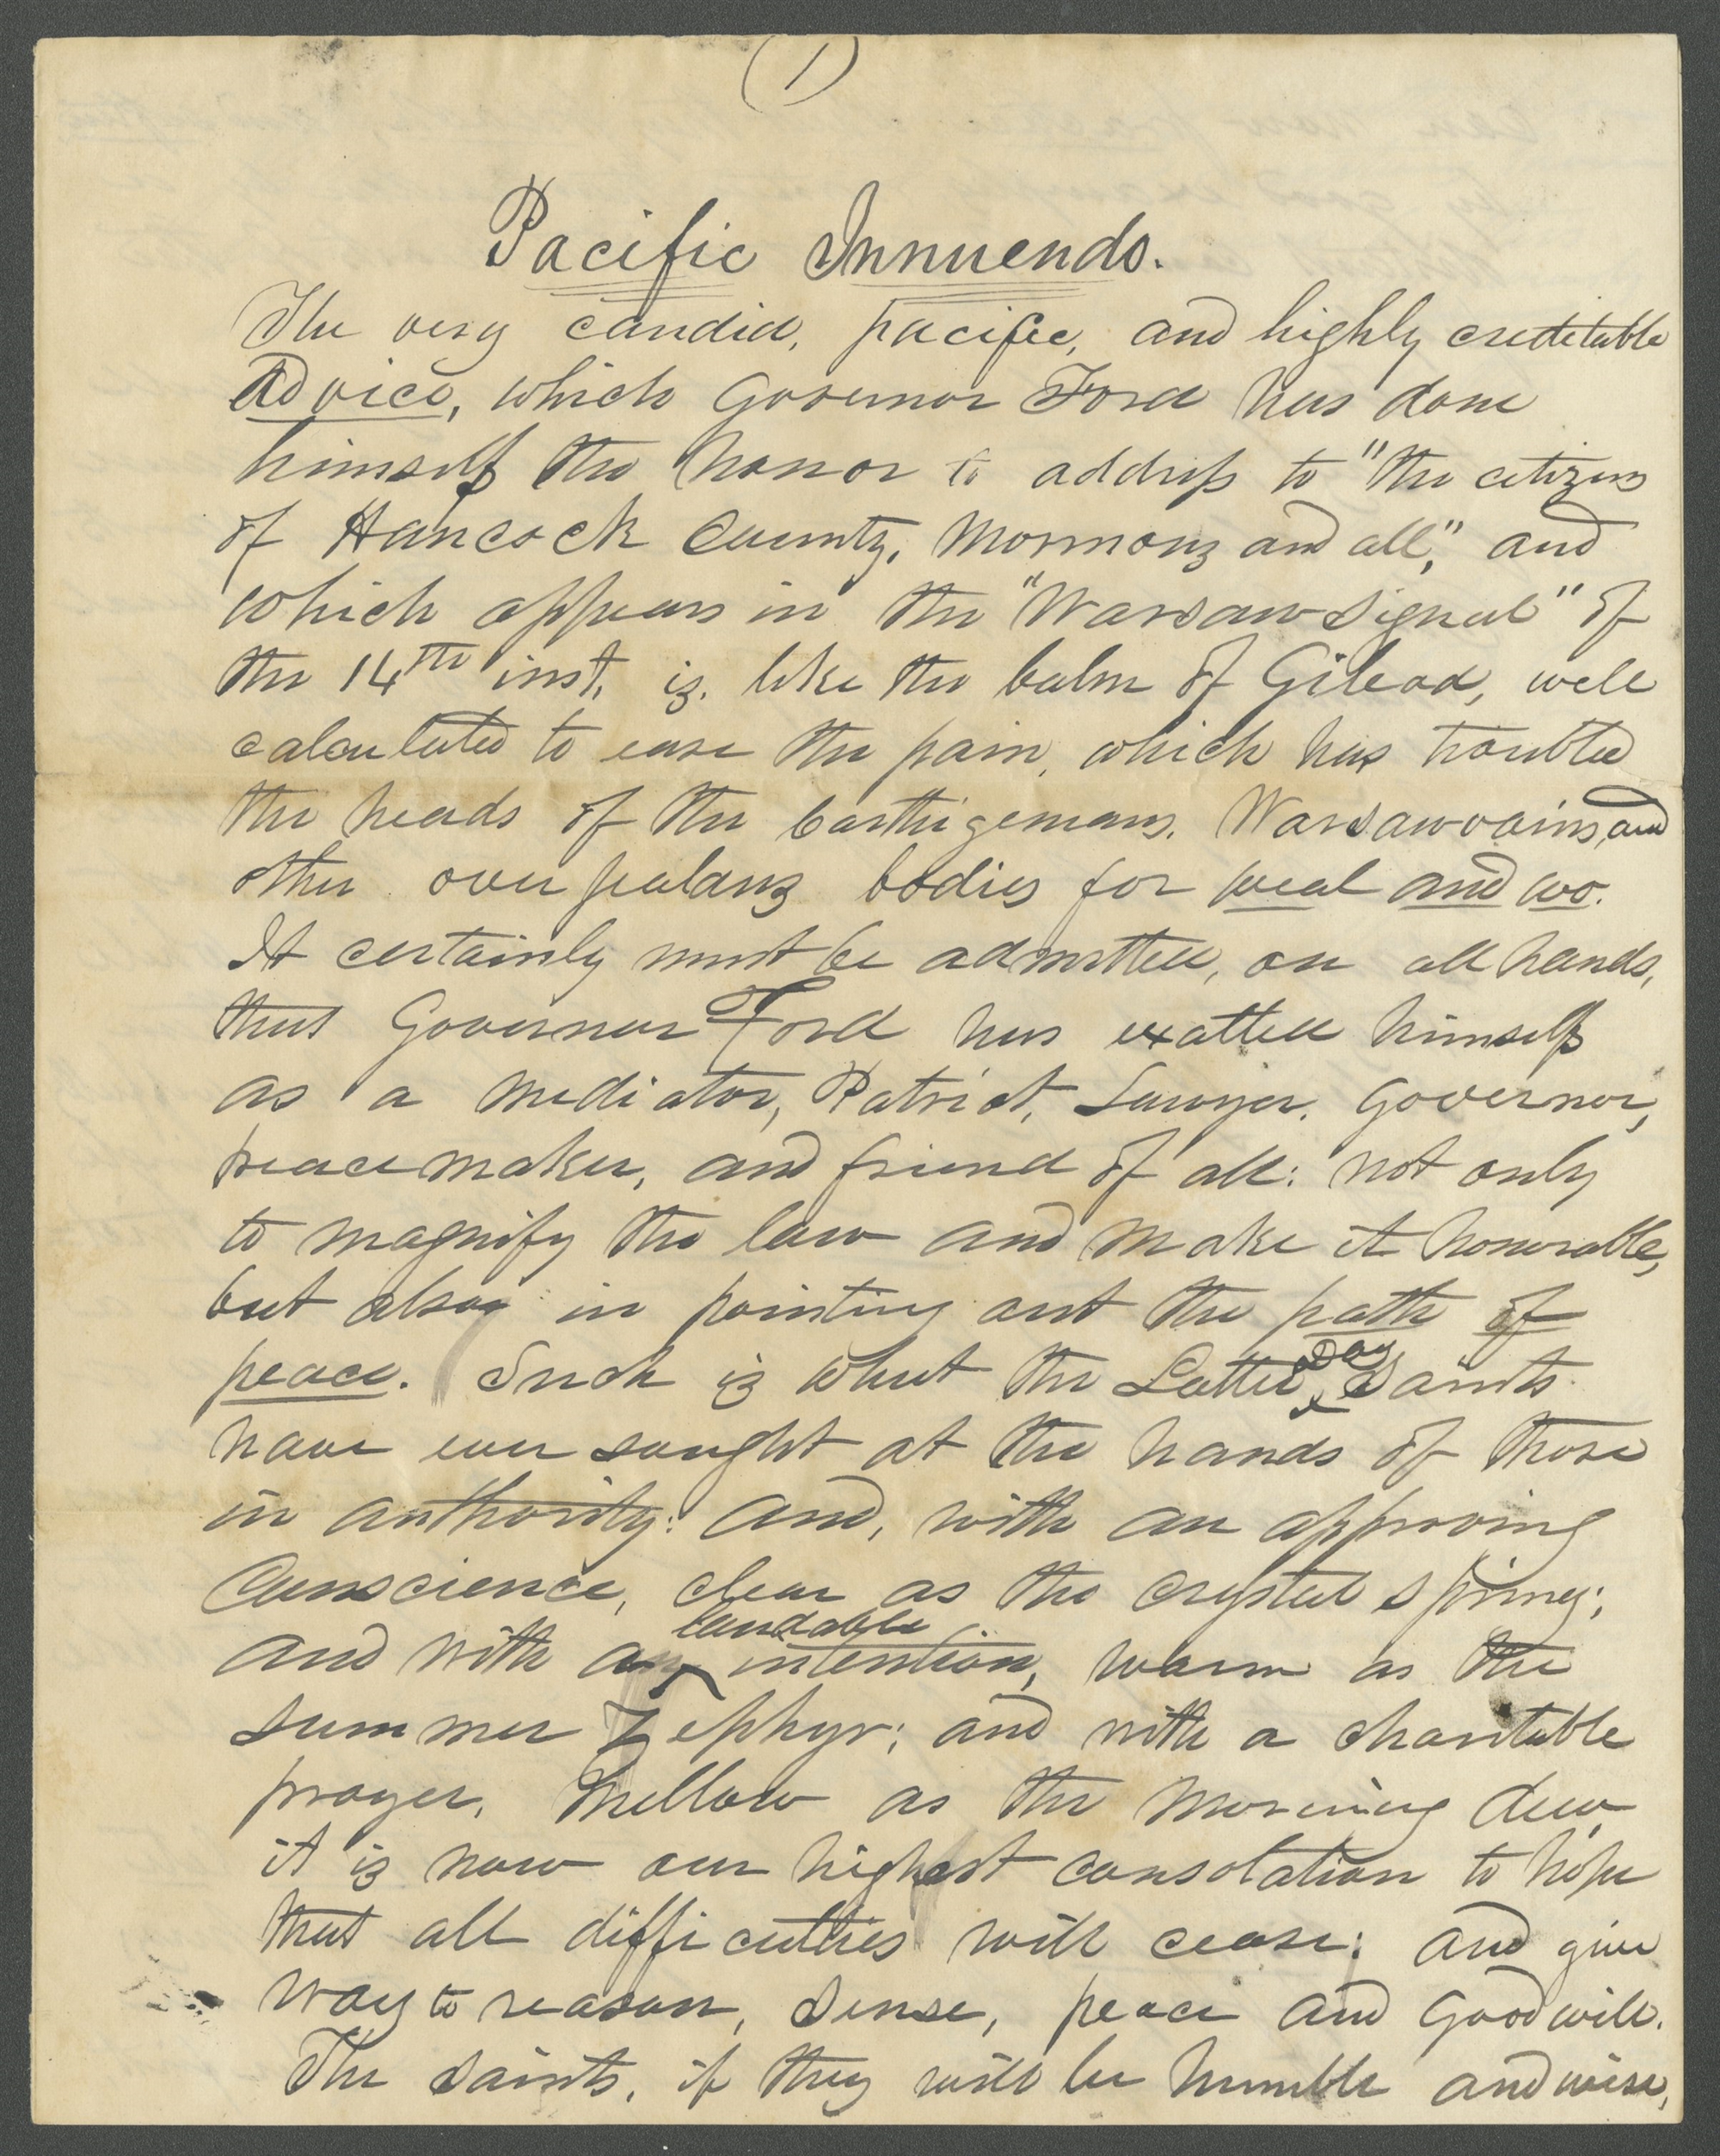 (1)
Pacific Innuendo.
The very candid, pacific, and highly creditable
Advice, which Governor Ford has done
himself the honor to address to "the citizens
of Hancock County, Mormons and all," and
which appears in the "Warsaw Signal" of
the 14th inst, is, like the balm of Gilead, well
calculated to ease the pain, which has troubled
the heads of the Carthigenians, Warsawvains, and
other over jealous bodies for weal and wo.
It certainly must be admitted, on all hands,
that Governor Ford has exalted himself
as a mediator, Patriot, Lawyer, Governor,
peacemaker, and friend of all: not only
to magnify the law and make it honorable,
but also in pointing out the path of
peace. Such is what the Latter Day Saints
have ever sought at the hands of those
in authority: and, with an approving
Conscience, clear as the crystal spring;
and with a laudable intention, warm as the
summer Zephyr; and with a charitable
prayer, Mellow as the morning dew,
it is now our highest consolation to hope
that all difficulties will cease; and give
way to reason, sense, peace and goodwill.
The saints, if they will be humble and wise,